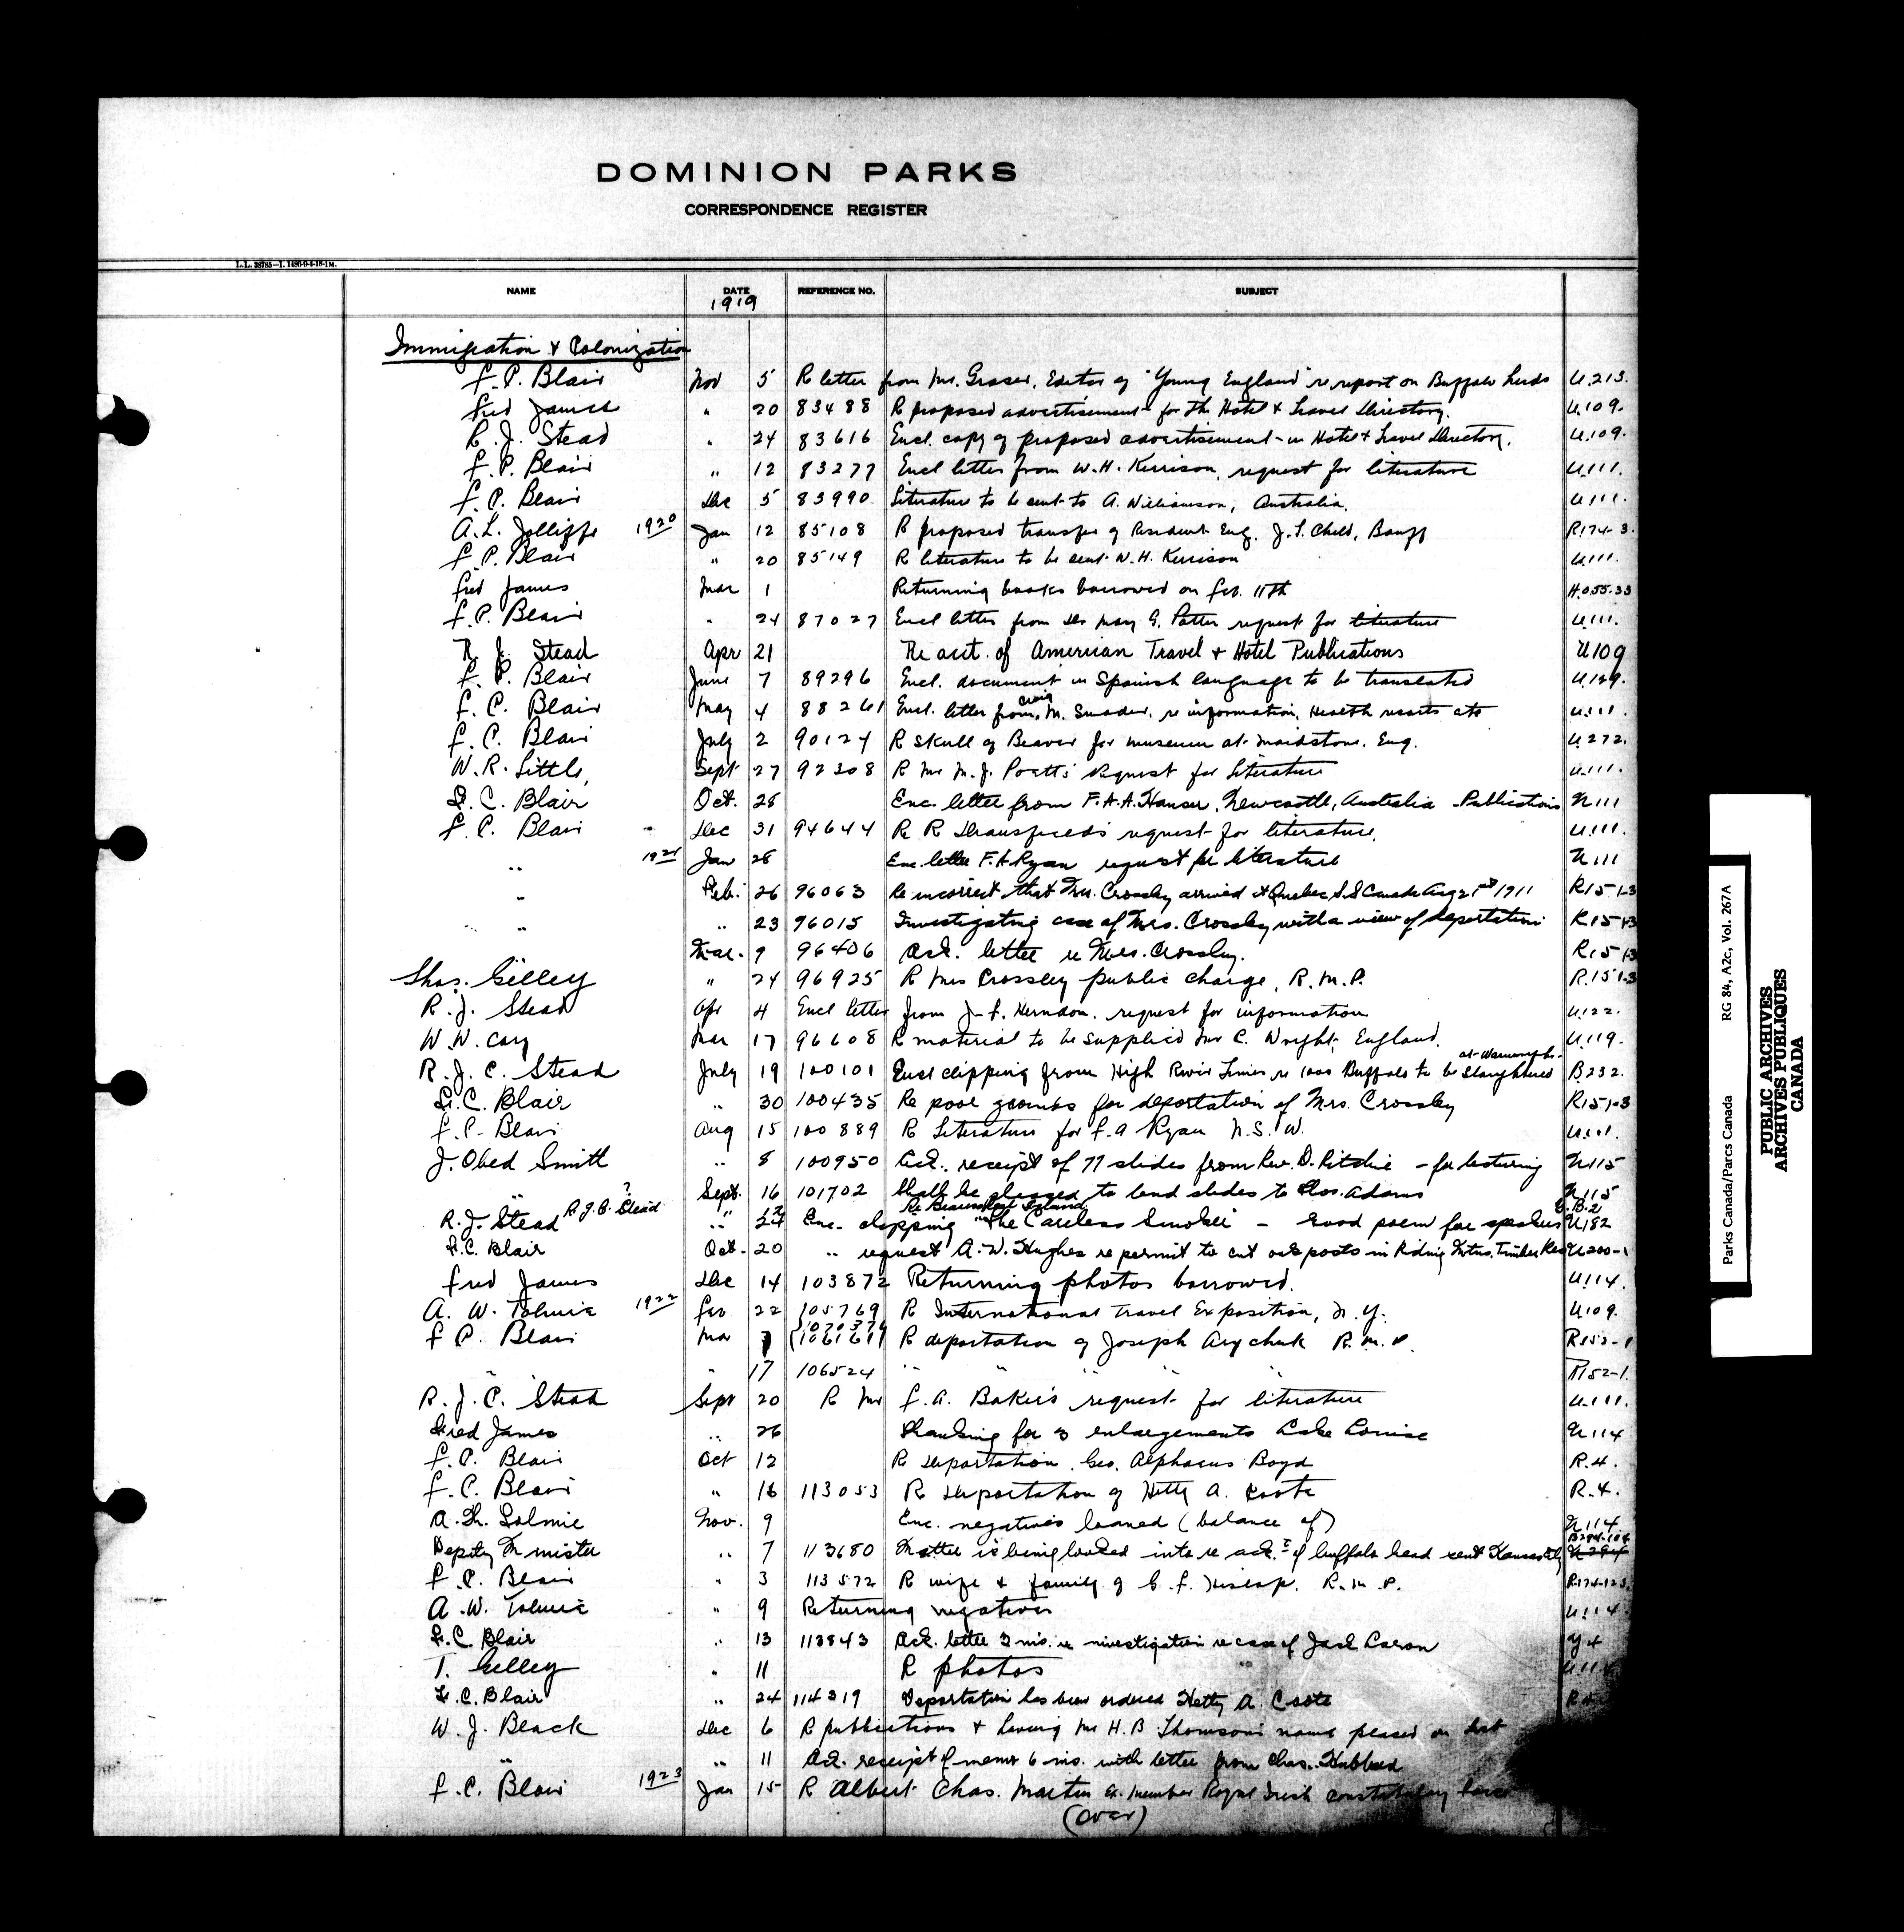 DOMINION PARKS
CORRESPONDENCE REGISTER
L.L. 38785—I. 1486-9-4-18-1M.
NAME DATE REFERENCE NO. SUBJECT
1919
Immigration & Colonization
F. C. Blair Nov 5 R letter from Mr. Graser, Editor of "Young England" re report on Buffalo herds U.213.
Fred James " 20 83488 R proposed advertisement for the Hotel & Travel Directory. U.109.
R. J. Stead " 24 83616 Encl. copy of proposed advertisement in Hotel & Travel Directory. U.109.
F. C. Blair " 12 83277 Encl letter from W. H. Kerrison, request for literature U.111.
F. C. Blair Dec 5 83990 Literature to be sent to A. Williamson, Australia. U.111.
A. L. Jolliffe 1920 Jan 12 85108 R proposed transfer of Resident Eng. J. T. Child, Banff R.174-3.
F. C. Blair " 20 85149 R literature to be sent W. H. Kerrison U.111.
Fred James Mar 1 Returning books borrowed on Feb. 11th H.055.33
F. C. Blair " 24 87027 Encl letter from Dr May G. Potter request for literature U.111.
R. J. Stead Apr 21 Re acct. of American Travel & Hotel Publications U109
F. C. Blair June 7 89296 Encl. document in Spanish language to be translated U.129.
F. C. Blair May 4 88261 Encl. letter from Craig M. Snader, re information, Health resorts etc U.111.
F. C. Blair July 2 90124 R Skull of Beaver for museum at Maidstone, Eng. U.272.
W. R. Little, Sept 27 92308 R Mr M. J. request for literature U.111.
F. C. Blair Oct. 28 Enc. letter from F. A. A. Hauser, Newcastle, Australia - Publications U111
F. C. Blair Dec 31 94644 Re R Dransfield's request for literature. U.111.
" 1921 Jan 28 Enc. letter F. A. Ryan request for literature U111
" Feb. 26 96063 Re incorrect that Mrs. Crossley arrived at Quebec S.S. Canada Aug 21st 1911 R151-3
" " 23 96015 Investigating case of Mrs. Crossley with a view of deportation R151-3
Mar. 9 96406 Ack. letter re Mrs. Crossley. R151-3
Thos. Gelley " 24 96925 R Mrs Crossley public charge, R.M.P. R.151-3
R. J. Stead Apr 4 Encl letter from J. F. Herndon, request for information U.122.
W. W. Cory Mar 17 96608 R material to be supplied Mr C. Wright, England. U.119.
at Wainwright
R. J. C. Stead July 19 100101 Encl clipping from High River Times re 1000 Buffalo to be Slaughtered B.232.
F. C. Blair " 30 100435 Re poor grounds for deportation of Mrs. Crossley R151-3
F. C. Blair Aug 15 100889 R Literature for F. A Ryan N.S.W. U.111.
J. Obed Smith " 8 100950 Ack. receipt of 77 slides from Rev. D. Ritchie - for lecturing U115
" Sept. 16 101702 Shall be pleased to lend slides to Thos. Adams U115
R.J.C. Stead ? " 12 Re Beausoleil Island G.B.2
R. J. Stead " 24 Enc. clipping "The Careless Smoker" - Good poem for speakers U182
F. C. Blair Oct. 20 " request A. W. Hughes re permit to cut oak posts in Riding Mtns. Timber Res U200-1
Fred James Dec 14 103872 Returning photos borrowed. U.114.
A. W. Tolmie 1922 Feb 22 105769 R International Travel Exposition, N.Y. U109.
F. C. Blair Mar 7 106161 R deportation of Joseph R.M.P. R152-1
" 17 106524 " " " R152-1.
R. J. C. Stead Sept 20 R Mr F. A. Baker's request for literature U.111.
Fred James " 26 Thanking for 3 enlargements Lake Louise U114
F. C. Blair Oct 12 R deportation Geo. Alphaeus Boyd R.4.
F. C. Blair " 16 113053 R Deportation of Hetty A. Coote R.4.
A. W. Tolmie Nov. 9 Enc. negatives loaned (balance of) U114
Deputy Minister " 7 113680 Matter is being looked into re of buffalo head sent Kansas City U294
F. C. Blair " 3 113572 R wife & family of C. F. Hislop. R.M.P. R.174-123.
A. W. Tolmie " 9 Returning negatives U.114.
F. C. Blair " 13 113843 Ack. letter 2 ins. re investigation re case of Jack Caron
T. Gelley " 11 R photos U.114
F. C. Blair " 24 114319 Deportation has been ordered Hetty A. Coote R 4
W. J. Black Dec 6 R publications & having Mr H. B. Thomson's name placed on list
" " 11 Ack. receipt of memo 6 ins. with letter from Chas. Hubbard
F. C. Blair 1923 Jan 15 R Albert Chas. Martin Ex. member Royal Irish constabulary force
(over)
Parks Canada/Parcs Canada RG 84, A2c, Vol. 267A
PUBLIC ARCHIVES
ARCHIVES PUBLIQUES
CANADA